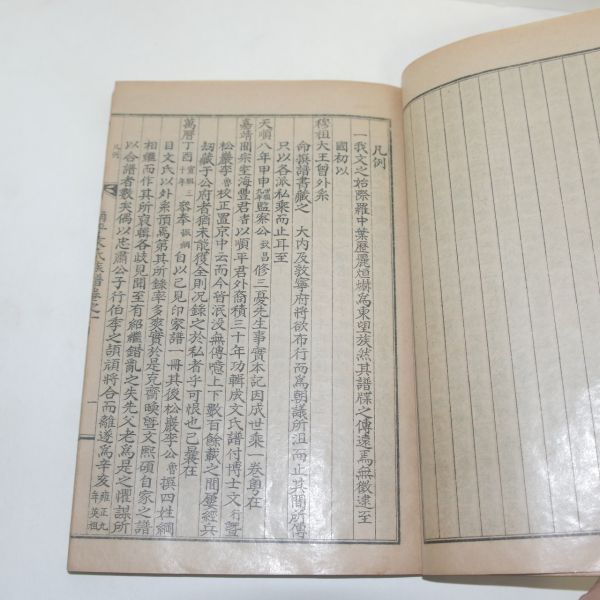 凡例
一我文之始際羅中葉歷麗烜爀爲東望族然其譜牒之傳遠焉無徵逮至
國初以
穆祖大王曾外系
命撰譜書藏之 大內及敦寧府將欲布行而爲朝議所沮而止其間所傳
只以各派私乘而止耳至
天順八年甲申 監察公 修三憂先生事實本記因成世乘一卷粤在
嘉靖間宗室海豊君 以順平君外裔積三十年功輯成文氏譜付博士文 曁
松巖李 校正置京中云而今皆泯没無傳噫上下數百餘載之間屢經兵
燹藏于公府者猶未能獲全則況錄之於私者乎可恨也已曩在
萬曆丁酉 參奉 自以己見印家譜一冊其後松巖李公 撰四姓綱
目文氏以外系預焉第其所錄率多爽實於是克齋 曁文熙碩自家之譜
相繼而作其所裒輯各歧見聞至有紹繼錯亂之失先父老爲是之懼謀所
以合譜者數矣偶以忠肅公子行伯季之頡頏將合而離遂爲辛亥 雍正九年英祖
凡例
南平文氏族譜卷之一
一